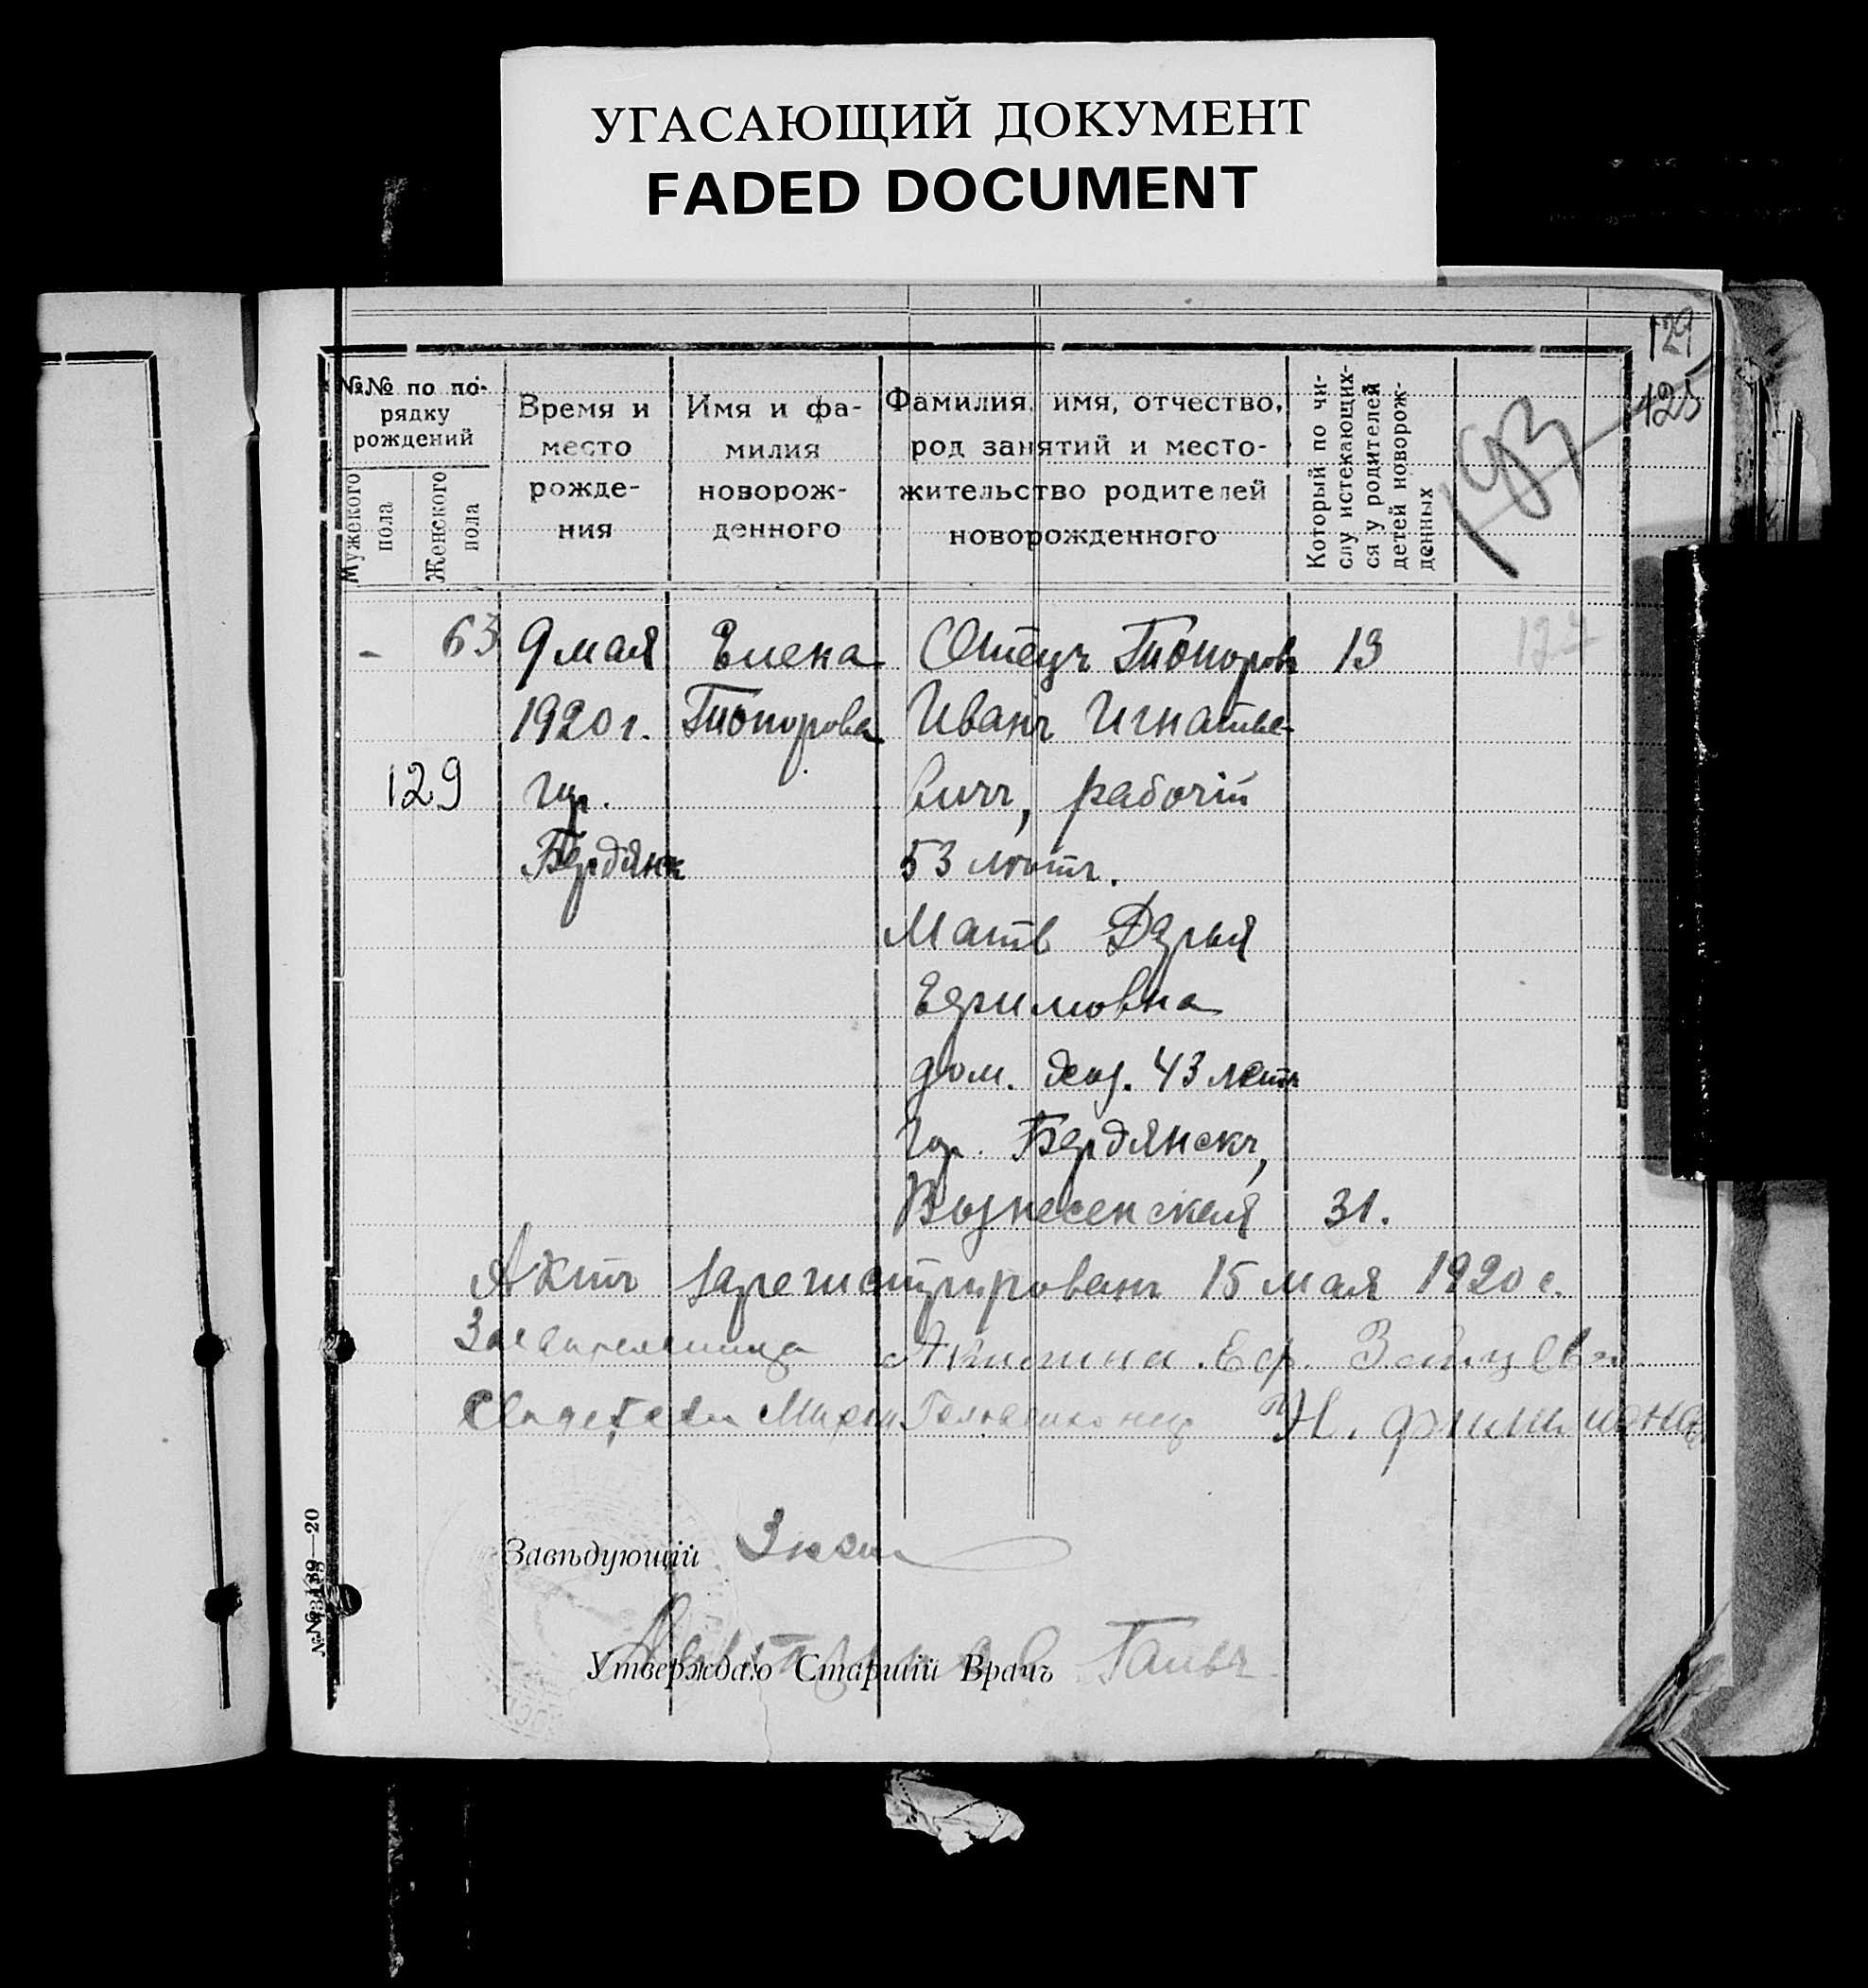 УГАСАЮЩИЙ ДОКУМЕНТ
FADED DOCUMENT
129
125
193
№№ по по-
рядку
рождений
Мужского
пола
Женского
пола
Время и
место
рожде-
ния
Имя и фа-
милия
новорож-
денного
Фамилия, имя, отчество,
род занятий и место-
жительство родителей
новорожденного
Который по чи-
слу истекающих-
ся у родителей
детей новорож-
денных
- 63 9 мая Елена Отецъ Топоровъ 13
1920 г. Топорова Иванъ Игнатье-
129 гор. вичъ, рабочій
Бердянк 53 лѣтъ.
Мать Дарья
Ефимовна
дом. хоз. 43 лѣтъ
гор. Бердянскъ,
Вознесенская 31.
Актъ зарегистрированъ 15 мая 1920 г.
Заявительница Акилина Еф. Зайцева
Свидетели Мария Н.
Завѣдующій
Утверждаю Старшій Врачъ